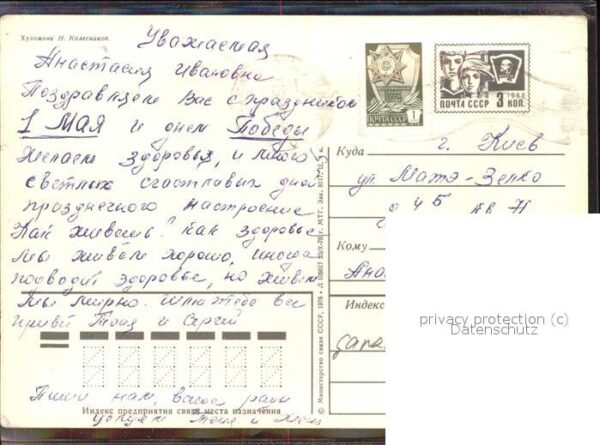 Художник Н. Колесников
Уважаемая
Анастасия Ивановна
Поздравляем Вас с праздником
1 Мая и днем Победы
желаем здоровья, и много
светлых счастливых дней
праздничного настроение
Как живешь? Как здоровье
Мы живем хорошо, иногда
подводит здоровье, но живем
Мы мирно.
привет Тоня и Сергей
Пиши нам, всегда рады
целуем Тоня и
Индекс предприятия связи места назначения
© Министерство связи СССР, 1976
ПОЧТА СССР 1
1966
ПОЧТА СССР 3 КОП.
Куда г. Киев
ул. Матэ-Залко
Кому
Ана
Индекс
privacy protection (c)
Datenschutz